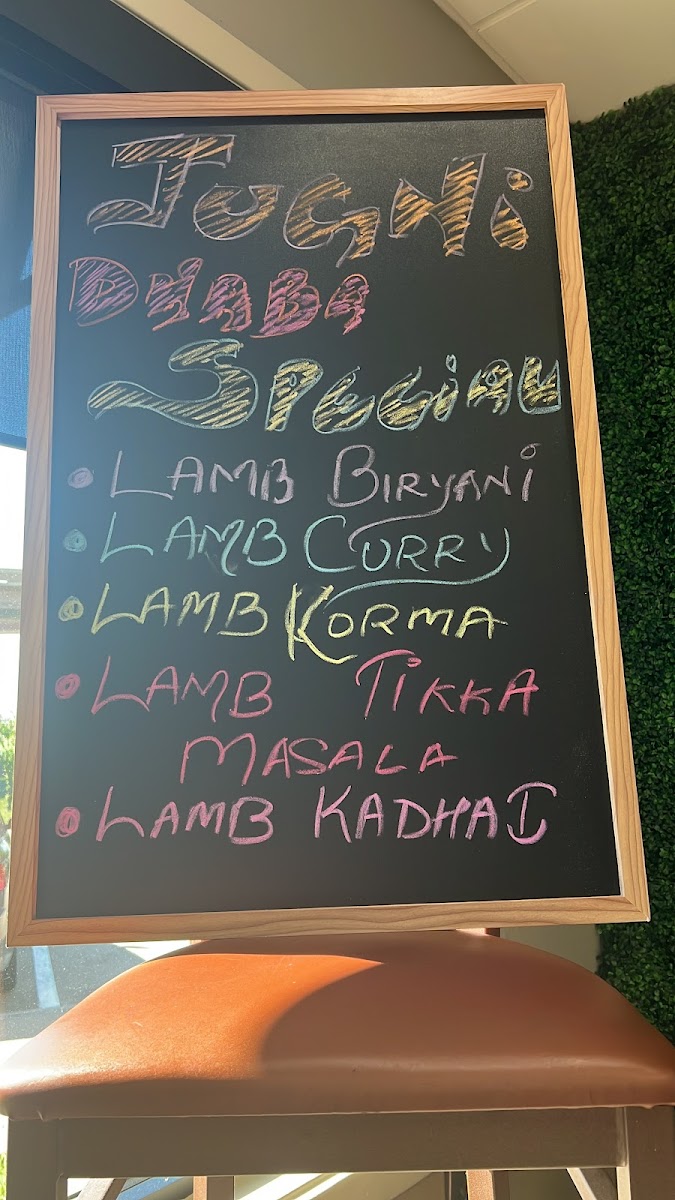 Jugni
DHABA
SPECIAL
• LAMB BIRYANI
• LAMB CURRY
• LAMB KORMA
• LAMB TIKKA
MASALA
• LAMB KADHAI